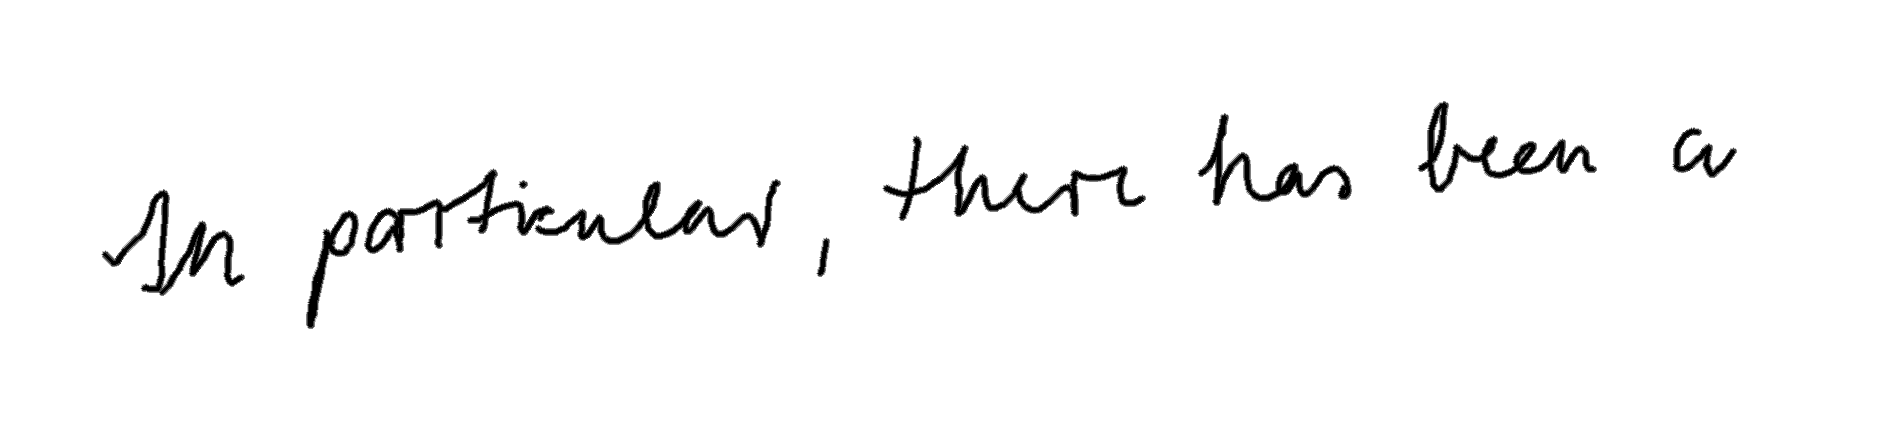 In particular, there has been a